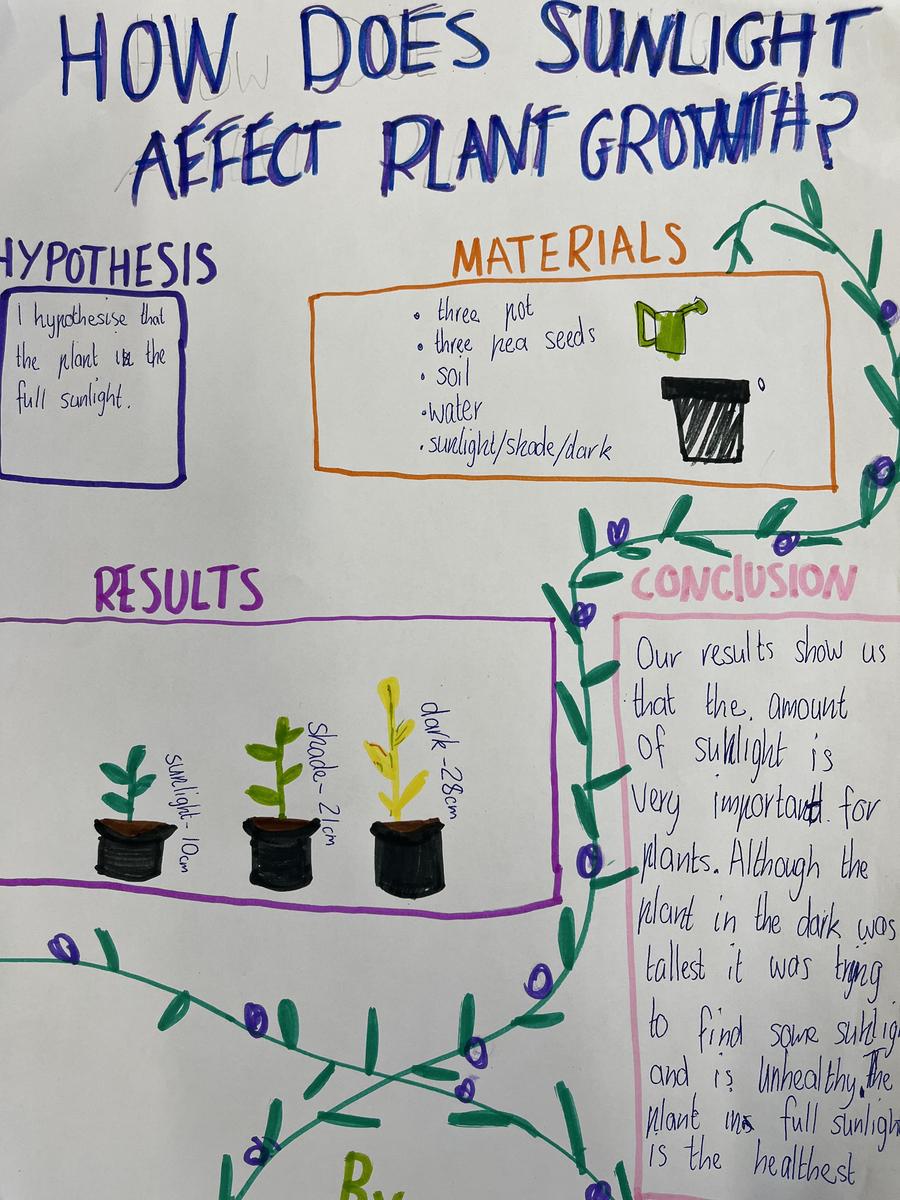 HOW DOES SUNLIGHT
AFFECT PLANT GROWTH?
HYPOTHESIS
I hypothesise that
the plant in the
full sunlight.
MATERIALS
• three pot
• three pea seeds
• soil
• water
• sunlight/shade/dark
RESULTS
sunlight - 10cm
shade - 21cm
dark - 28cm
CONCLUSION
Our results show us
that the. amount
of sunlight is
very important for
plants. Although the
plant in the dark was
tallest it was trying
to find some sunlig
and is unhealthy. The
plant in full sunligh
is the healthest
By